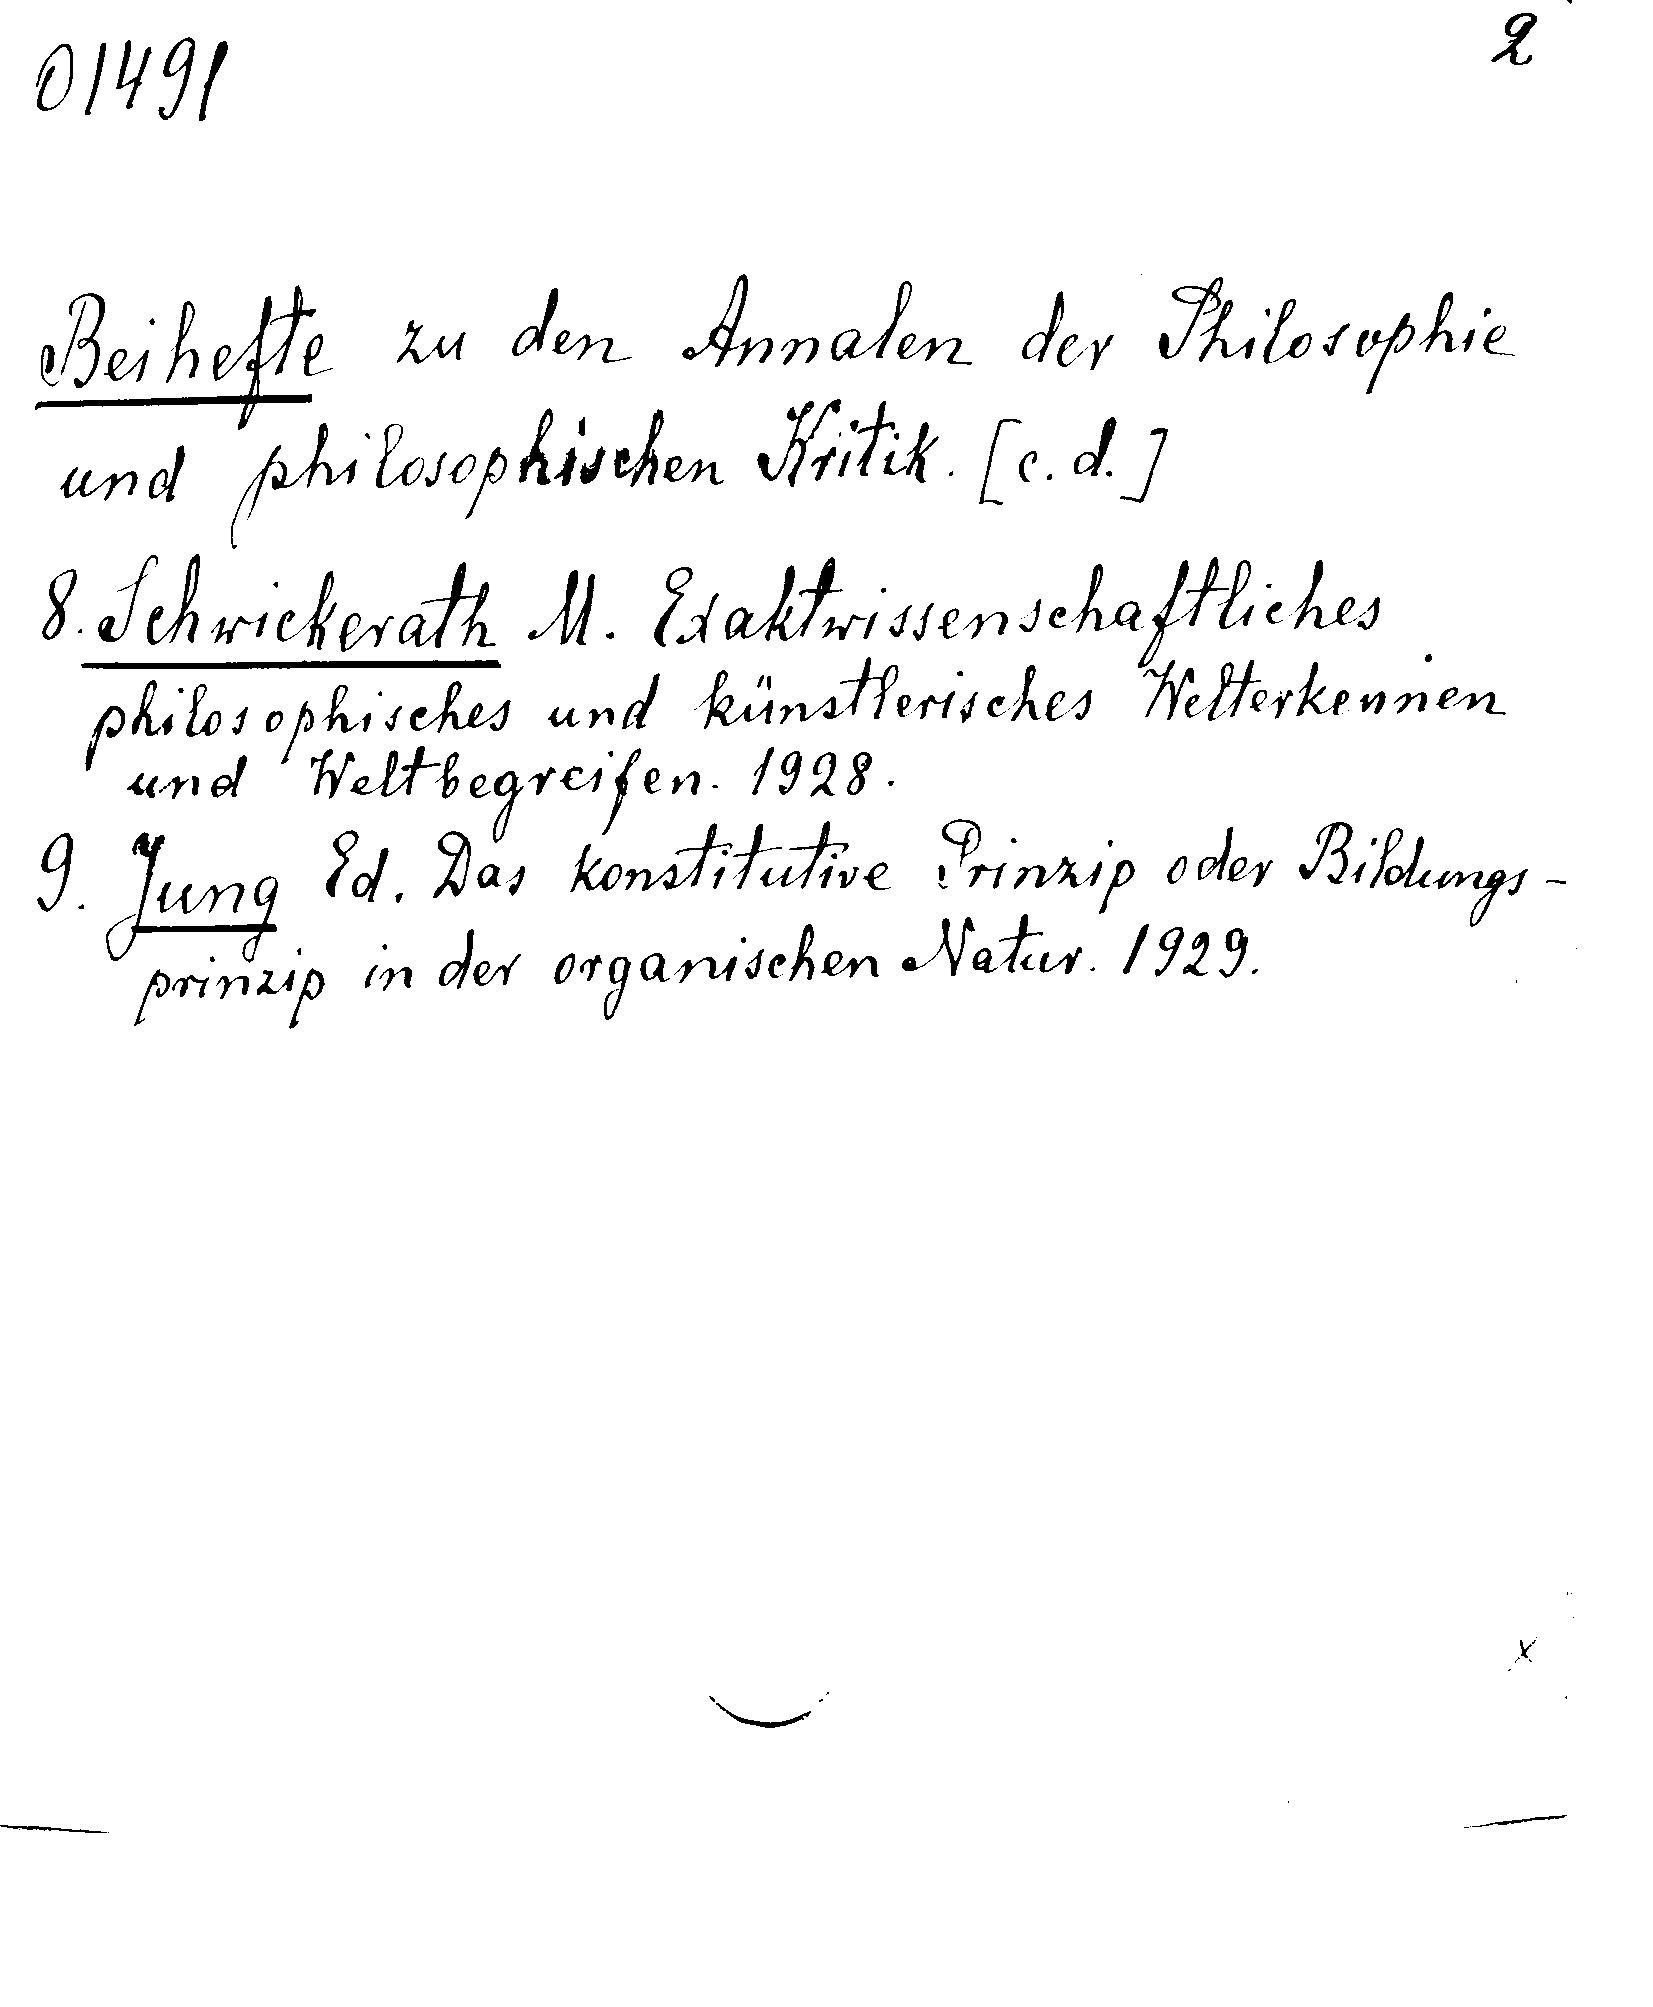 01491
2
Beihefte zu den Annalen der Philosophie
und philosophischen Kritik. [c.d.]
8. Schwickerath M. Exaktwissenschaftliches
philosophisches und künstlerisches Welterkennen
und Weltbegreifen. 1928.
9. Jung Ed. Das konstitutive Prinzip oder Bildungs-
prinzip in der organischen Natur. 1929.
x